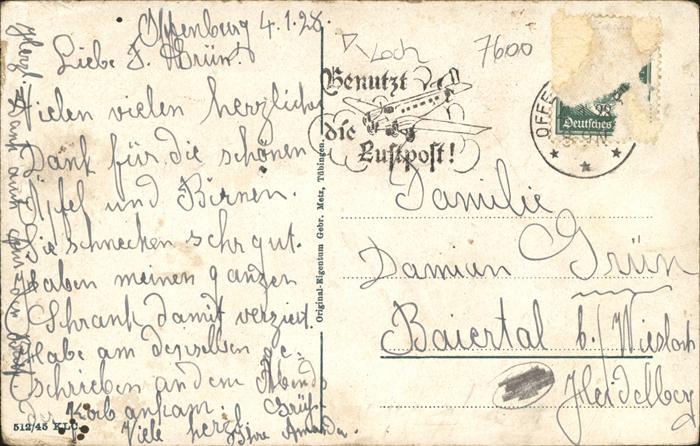 Offenburg 4.1.28.
Liebe F. Grün!
Vielen vielen herzlichen
Dank für die schönen
Äpfel und Birnen.
Sie schmecken sehr gut.
Haben meinen ganzen
Schrank damit verziert.
Habe am denselben ge-
schrieben an dem Abend
der Korb ankam.
Viele herzl. Grüße
Ihre Amanda.
Herzl. Dank auch
512/45 KLC
Original-Eigentum Gebr. Metz, Tübingen.
Loch
7600
Benutzt
die
Luftpost!
OFFE
Deutsches
Familie
Damian Grün
Baiertal b./Wiesloch
Heidelberg